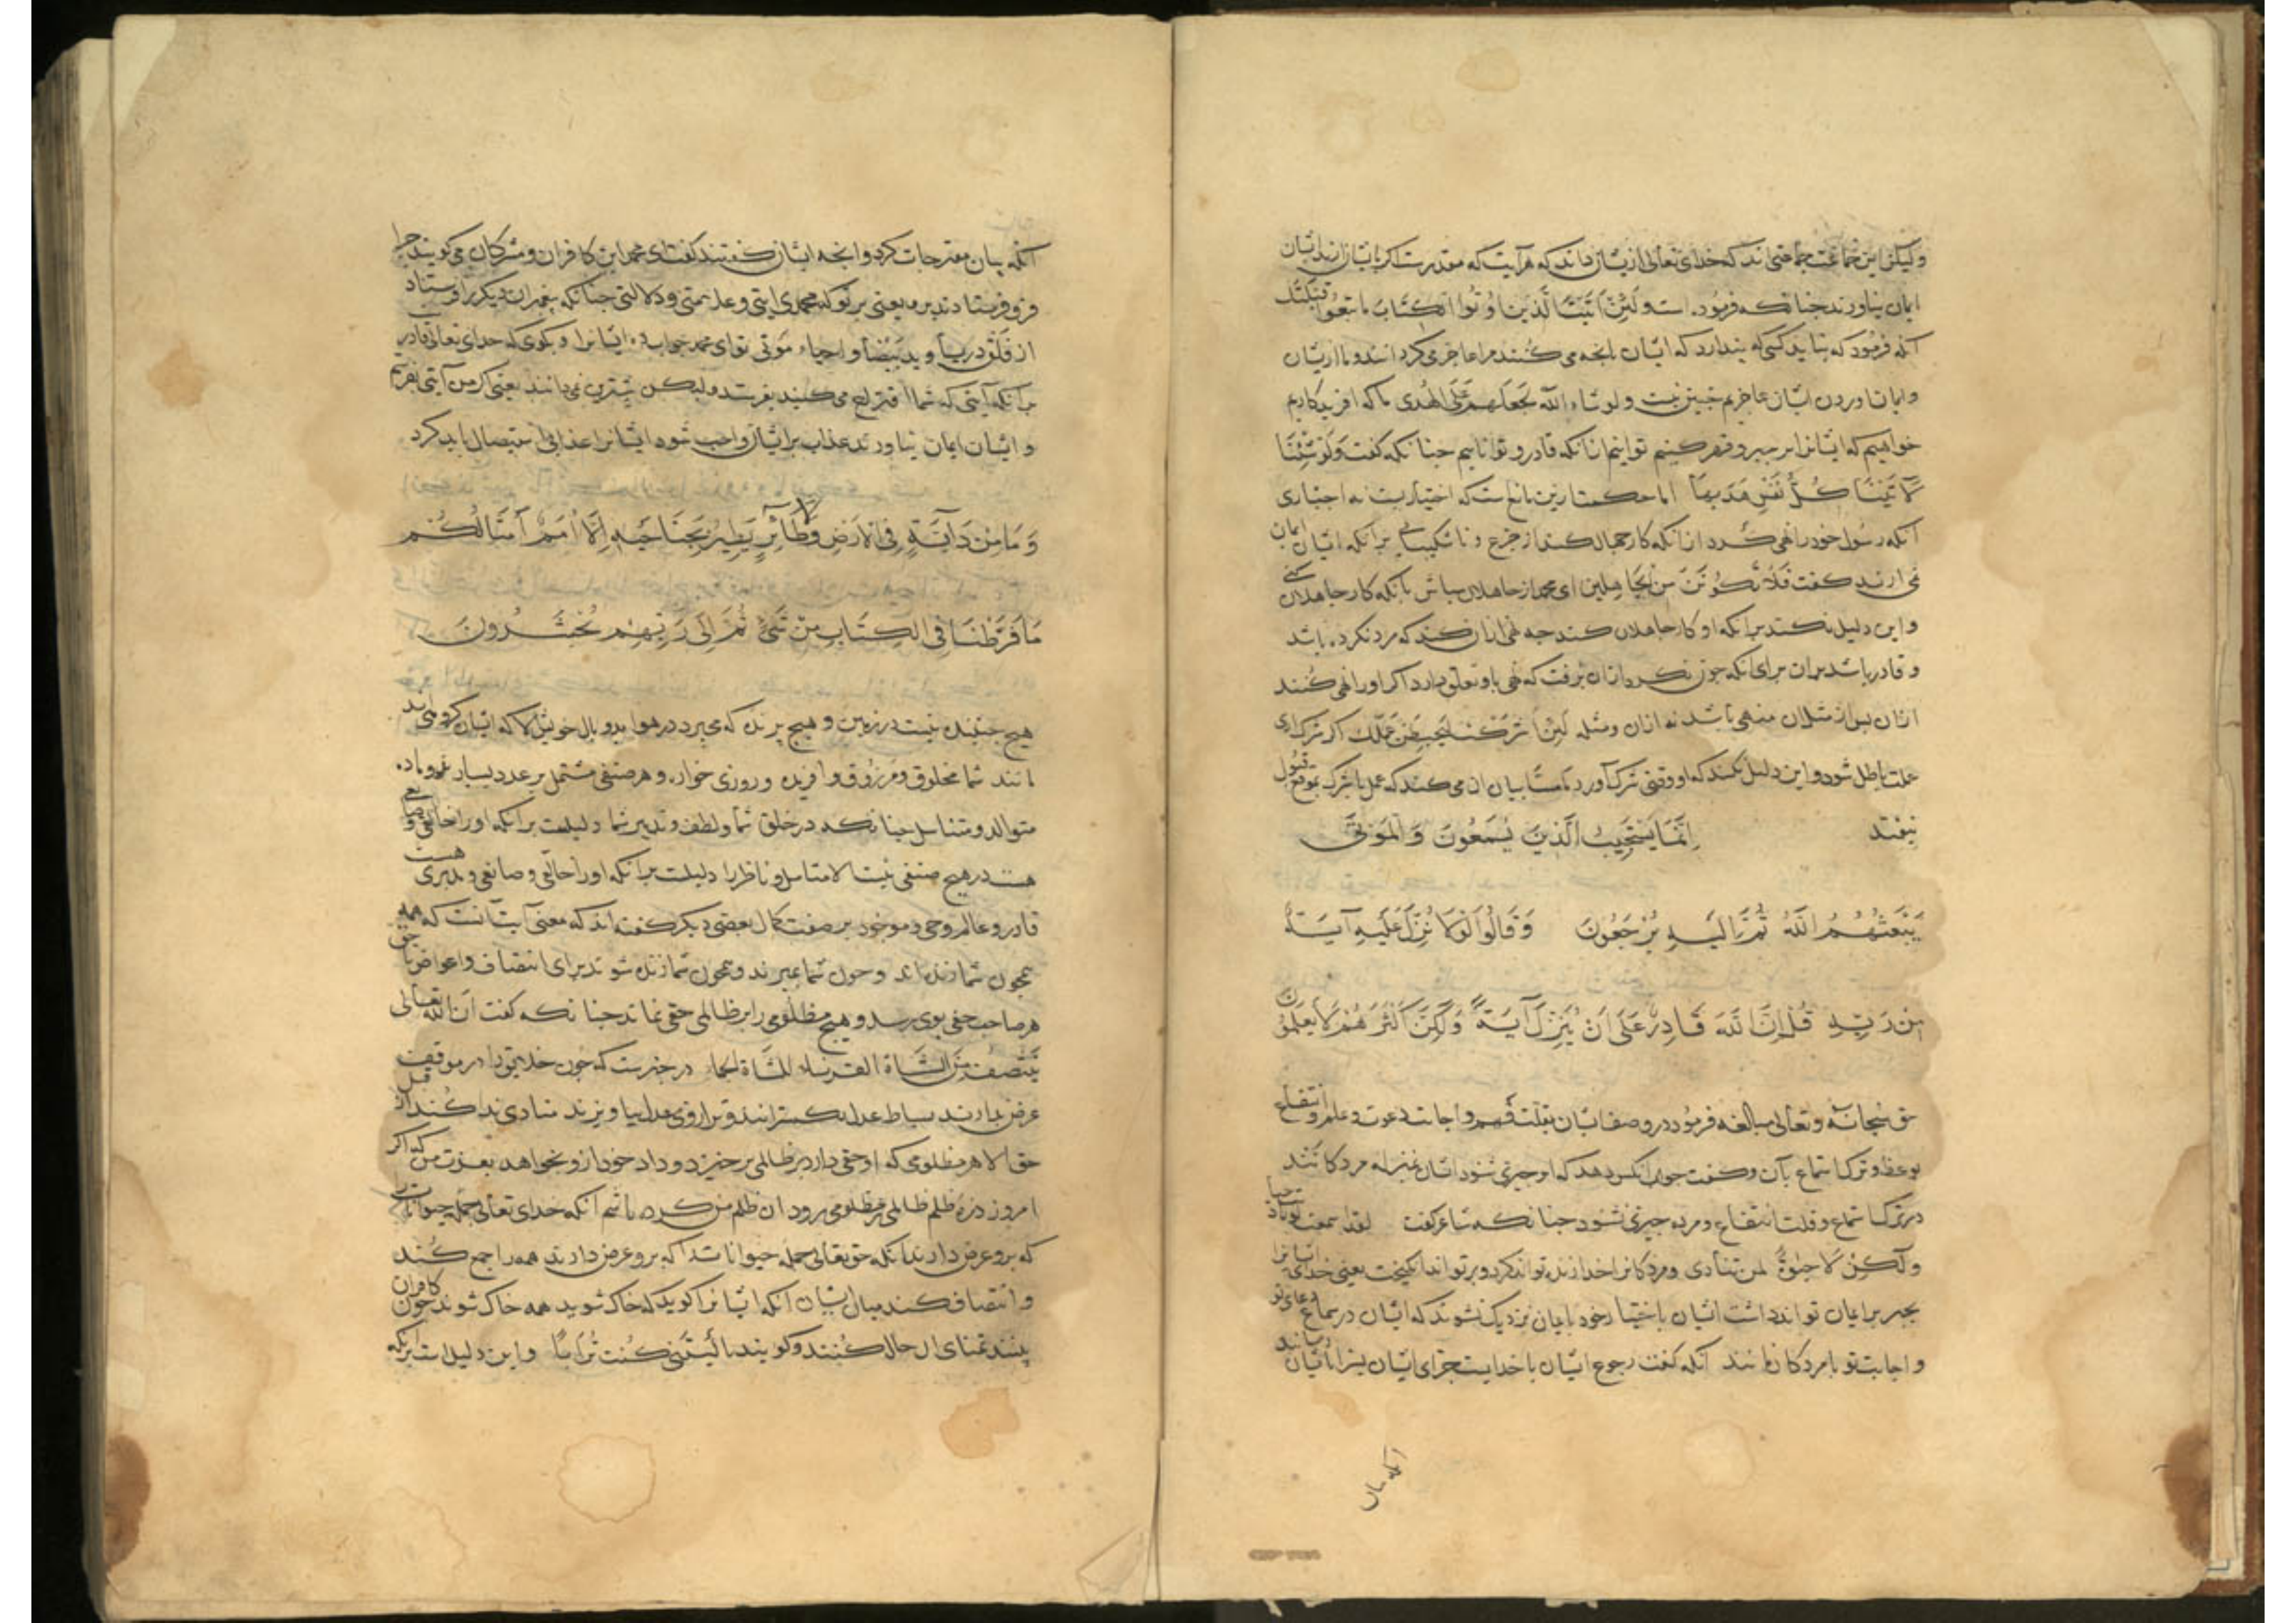 ولیکن این جماعت جماعتی اند که خدای تعالی ازیشان داند که هر آیت که مقدورست اگر بایشان ارند ایشان
ایمان نیاورند چنانکه فرموده است ولئن اتیت الذین اوتوا الکتاب ما تبعوا قبلتک
آنکه فرمود که نباید کسی که پندارد که ایشان بانجه می کنند مرا عاجز می کردانند و ما از ایشان
و ایمان اوردن ایشان عاجزیم جنین نیست ولو شاء الله لجمعهم علی الهدی ما که افریدکاریم
خواهیم که ایشانرا بر جبر و قهر کنیم توانیم ازانکه قادر و تواناییم جنانکه کفت وَلَوْ شِئْنَا
لَآتَیْنَا کُلَّ نَفْسٍ هُدَیهَا اما حکمت ازین مانع است که اختیاریست نه اجباری
آنکه رسول خود را نهی کرد ازانکه کار جهال کند از جزع و ناشکیبایی برانکه ایشان ایمان
نمی ارند کفت فَلَا تَکُونَنَّ مِنَ الْجَاهِلِین ای محمد از جاهلان مباش بانکه کار جاهلان کنی
و این دلیل نکند برانکه او کار جاهلان کند جه نهی ازان کند که مرد نکرده باشد
و قادر باشد بران برای انکه جون بکرد ازان برفت که نهی باو تعلق دارد اکر اورا نهی کنند
ازان بس از مثل ان منهی باشد نه ازان ومثله لئن اشرکت لیحبطن عملک اکر شرک اری
عملت باطل شود و این دلیل نکند که او وقتی شرک آورد یا مستا بیان ان می کند که عمل با شرک بموقع قبول
نیفتد اِنَّمَا یَسْتَجِیبُ الَّذِینَ یَسْمَعُونَ وَالْمَوْتَی
یَبْعَثُهُمُ اللَّهُ ثُمَّ اِلَیْهِ یُرْجَعُونَ وَقَالُوا لَوْلَا نُزِّلَ عَلَیْهِ آیَةٌ
مِنْ رَبِّهِ قُلْ اِنَّ اللَّهَ قَادِرٌ عَلَی اَنْ یُنَزِّلَ آیَةً وَلَکِنَّ اَکْثَرَهُمْ لَا یَعْلَمُونَ
حق سبحانه وتعالی مبالغه فرمود در وصف ایشان بقلت فهم و اجابت دعوت و علم و انتفاع
بوعظ و ترک استماع بآن و کفت جواب انکس دهد که او جیزی شنود ایشان بمنزله مردکانند
در ترک استماع و قلت انتفاع و مرده جیزی نشنود جنانکه شاعر کفت لقد اسمعت لو نادیت حیا
ولکن لا حیوة لمن تنادی و مردکانرا خدا زنده تواند کرد و برتواند انکیخت یعنی خدای ایشانرا
بجبر بر ایمان تواند داشت ایشان باختیار خود بایمان نزدیک نشوند که ایشان در سماع دعای تو
و اجابت تو با مردکان مانند آنکه کفت رجوع ایشان با خداست جزای ایشان بسزا بایشان رساند
آنکه بیان
آنکه بیان مقترحات کرد و انجه ایشان کفتند کفت ای محمد این کافران و مشرکان می کویند جرا
فرو فرستادند بر وی یعنی بر تو که محمدی ایتی و علامتی و دلالتی جنانکه بیغمبران دیکر را فرستاد
از فلق دریا و ید بیضا و احیاء موتی تو ای محمد جواب ده ایشانرا و بکوی که خدای تعالی قادر
برانکه آیتی که شما اقتراح می کنید بفرستد ولیکن بیشترین نمی دانند یعنی اکر من آیتی بفرستم
و ایشان ایمان نیاورند عذاب بر ایشان واجب شود ایشانرا عذاب استیصال باید کرد
وَمَا مِنْ دَآبَّةٍ فِی الْاَرْضِ وَلَا طَائِرٍ یَطِیرُ بِجَنَاحَیْهِ اِلَّا اُمَمٌ اَمْثَالُکُمْ
مَا فَرَّطْنَا فِی الْکِتَابِ مِنْ شَیْءٍ ثُمَّ اِلَی رَبِّهِمْ یُحْشَرُونَ
هیج جنبنده نیست در زمین و هیج برنده که می برد در هوا بدو بال خویش الا که ایشان کروهی اند
مانند شما مخلوق و مرزوق و افریده و روزی خوار و هر صنفی مشتمل بر عدد بسیار نر و ماده
متوالد و متناسل جنانکه در خلق شما و لطف و تدبیر شما دلیلست برانکه اورا خالقی و صانعی
هست در هیج صنفی نیست الا متامل و ناظر را دلیلست برانکه اورا خالقی و صانعی و مدبری هست
قادر و عالم و حی و موجود بر صفت کمال بعضی دیکر کفته اند که معنی آیت آنست که همه
همجون شما زنده اند و جون شما بمیرند و همجون شما زنده شوند برای انتصاف و اعواض تا حق
هر صاحب حقی بوی رسد و هیج مظلومی را بر ظالمی حقی نماند جنانکه کفت ان الله تعالی
ینتصف من الشاة القرناء للشاة الجماء در خبرست که جون خلایق را در موقف
عرض بدارند بساط عدل بکسترانند و ترازوی عدل بیاویزند منادی ندا کند از قبل
حق الا هر مظلومی که او حقی دارد بر ظالمی برخیزد و داد خود ازو بخواهد بعزت من که اکر
امروز ذرهٔ ظلم ظالمی بر مظلومی برود ان ظلم من کرده باشم آنکه خدای تعالی جمله حیوانات را
که برو عرض دارند آنکه حق تعالی جمله حیوانات را که برو عرض دارند همه را جمع کند
و انتصاف کند میان ایشان آنکه ایشانرا کوید که خاک شوید همه خاک شوند جون کافران
بینند تمنای ان حال کنند و کویند یا لَیْتَنِی کُنْتُ تُرَابًا و این دلیل است برانکه